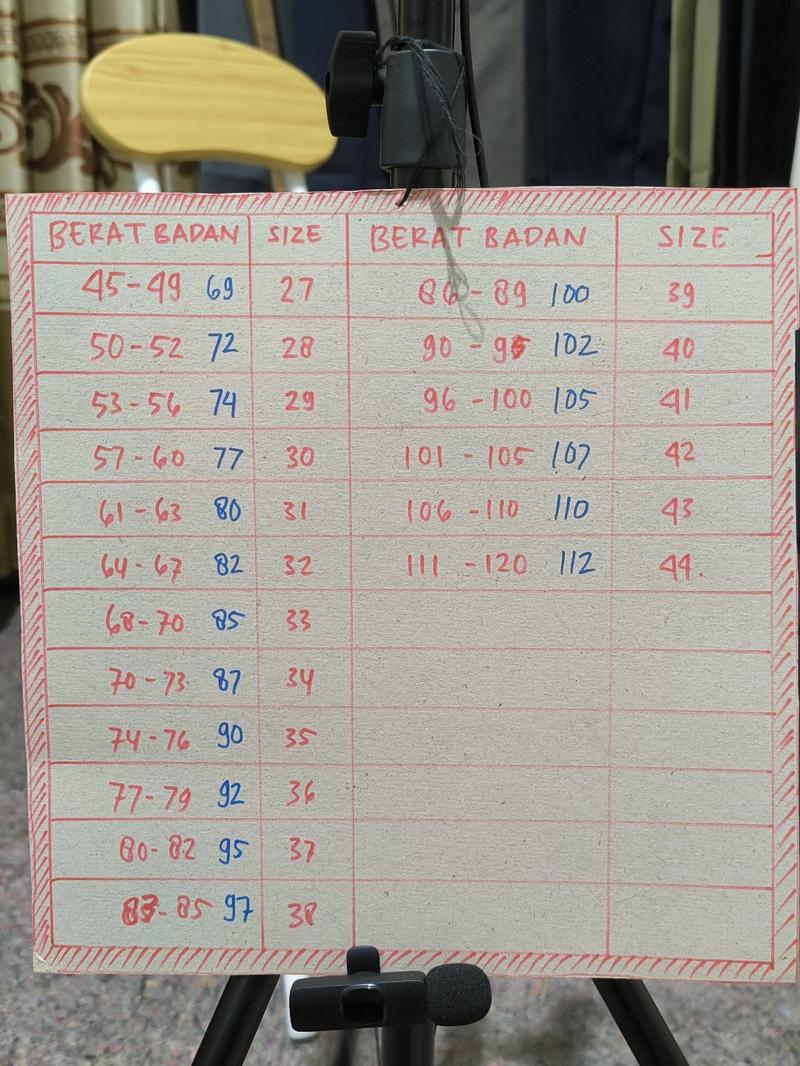 BERAT BADAN SIZE BERAT BADAN SIZE
45-49 69 27 86-89 100 39
50-52 72 28 90-95 102 40
53-56 74 29 96-100 105 41
57-60 77 30 101-105 107 42
61-63 80 31 106-110 110 43
64-67 82 32 111-120 112 44.
68-70 85 33
70-73 87 34
74-76 90 35
77-79 92 36
80-82 95 37
83-85 97 38